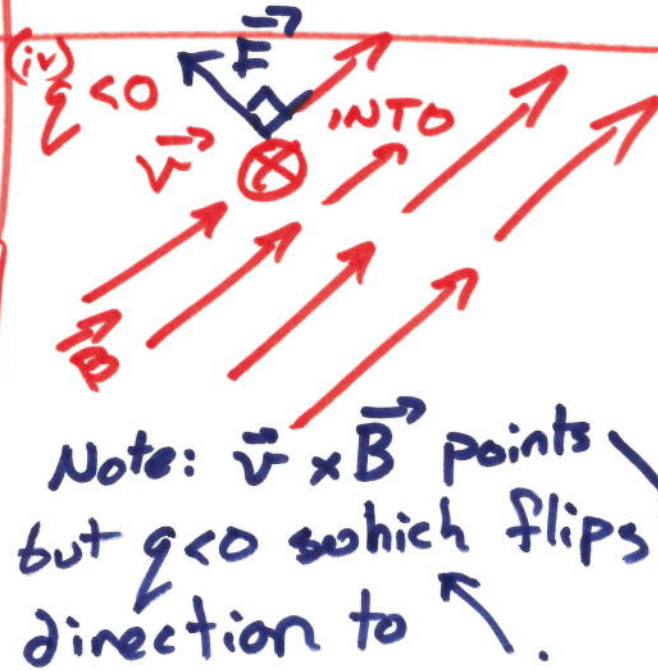 (iv)
F⃗
q < 0
INTO
v⃗
B⃗
Note: v⃗ × B⃗ points ↘
but q<0 which flips
direction to ↖.